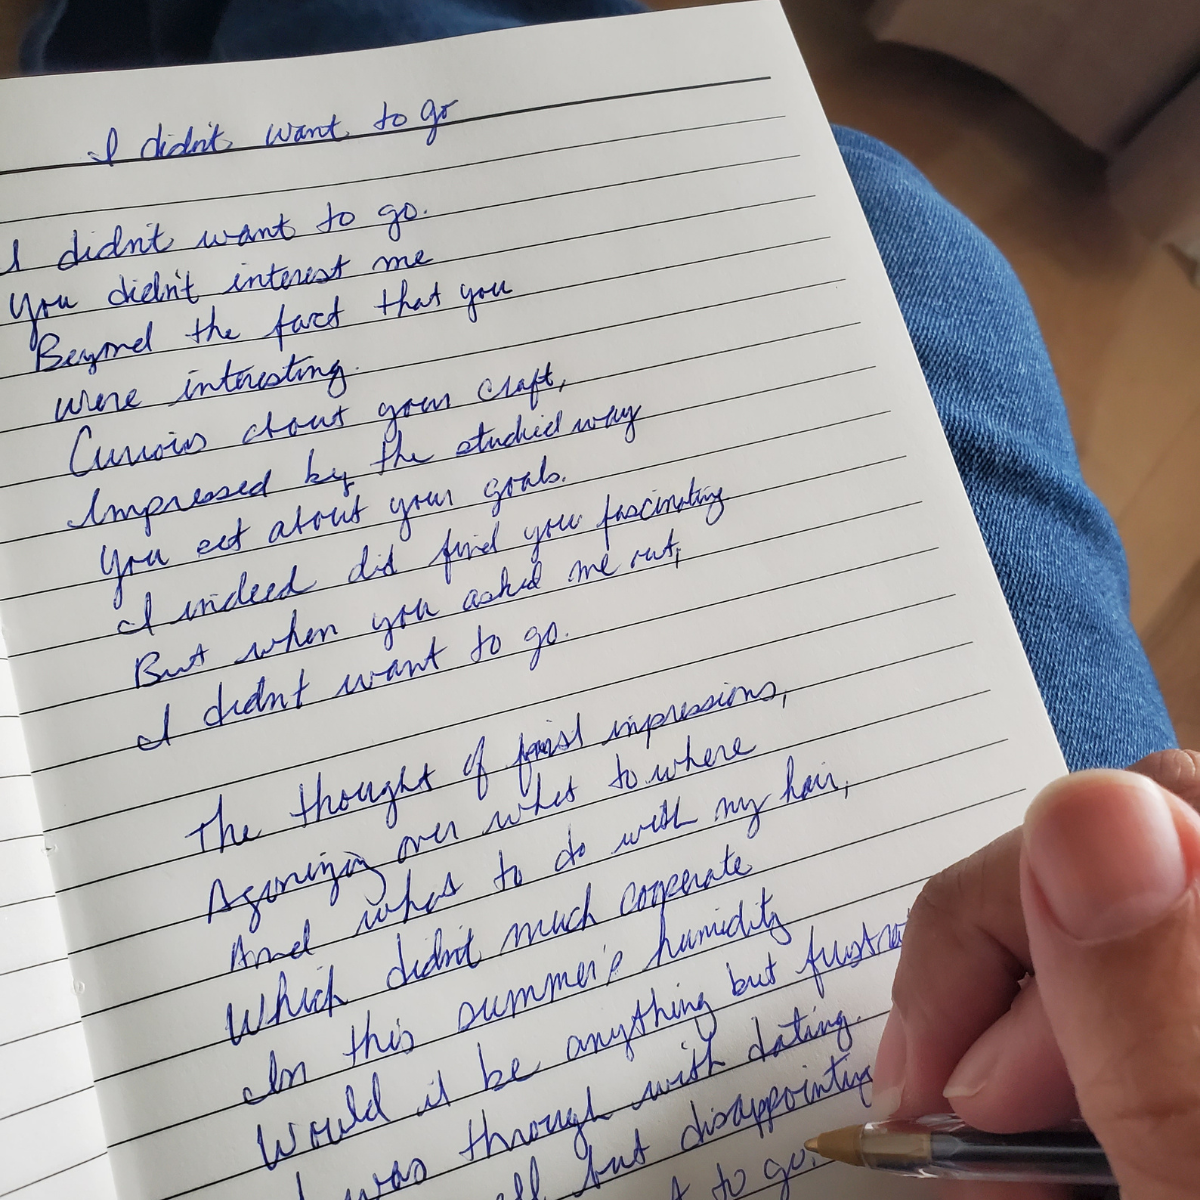 I didn't want to go
I didn't want to go.
You didn't interest me
Beyond the fact that you
were interesting.
Curious about your craft,
Impressed by the studied way
You set about your goals.
I indeed did find you fascinating
But when you asked me out,
I didn't want to go.
The thought of first impressions,
Agonizing over what to where
And what to do with my hair,
Which didn't much cooperate
In this summer's humidity
Would it be anything but
I was through with dating.
but disappointing
to go.